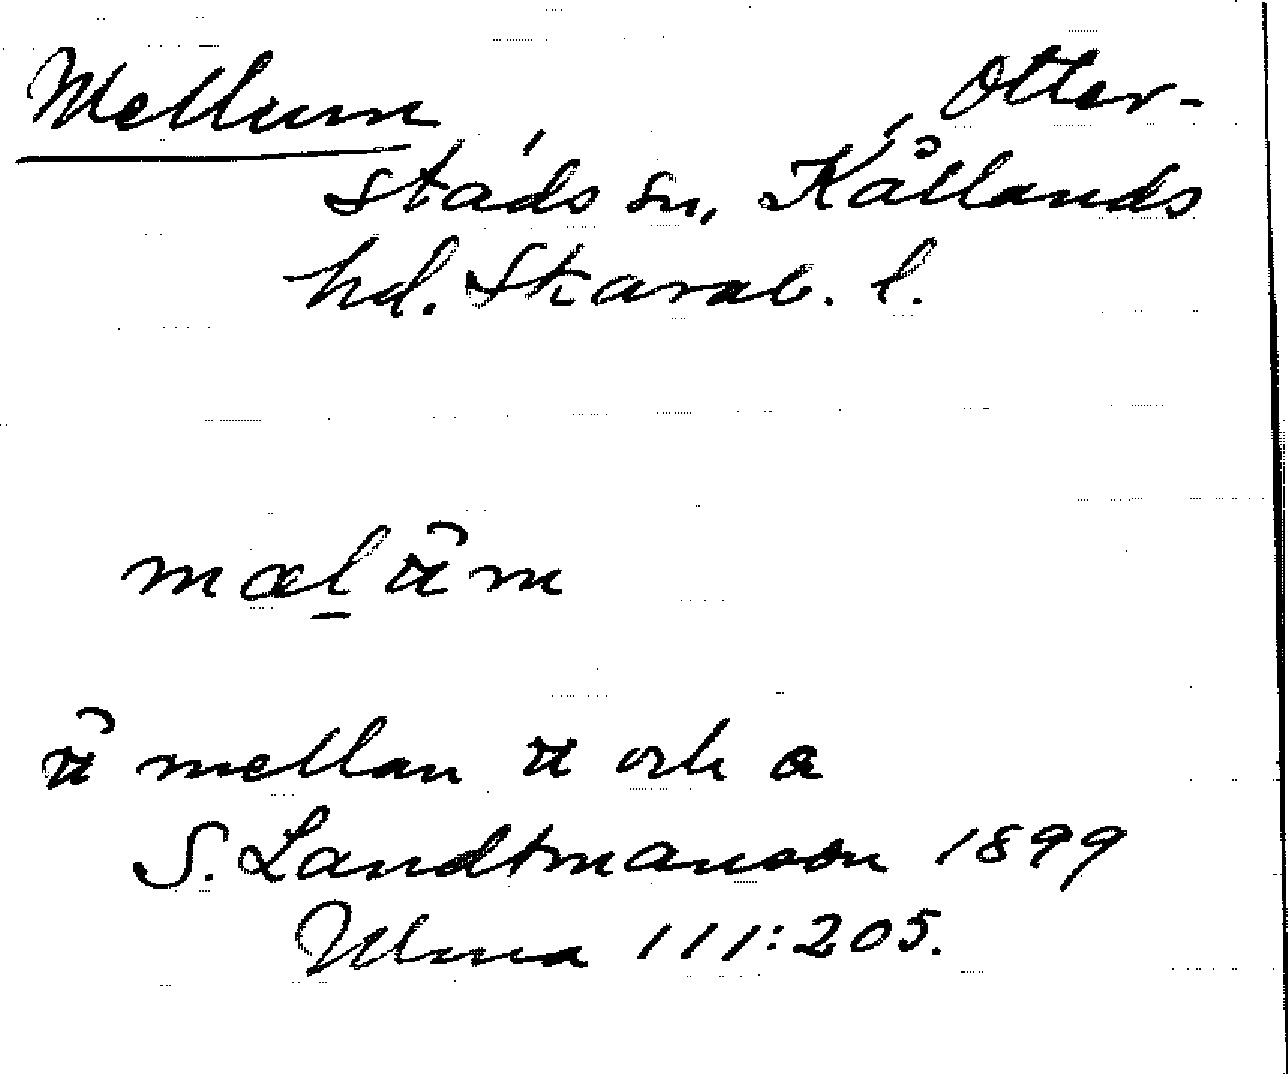 Mellum, Otter-
stads sn, Kållands
hd. Skarab. l.
mellan och a
S. Landtmanson 1899
Ulma 111:205.